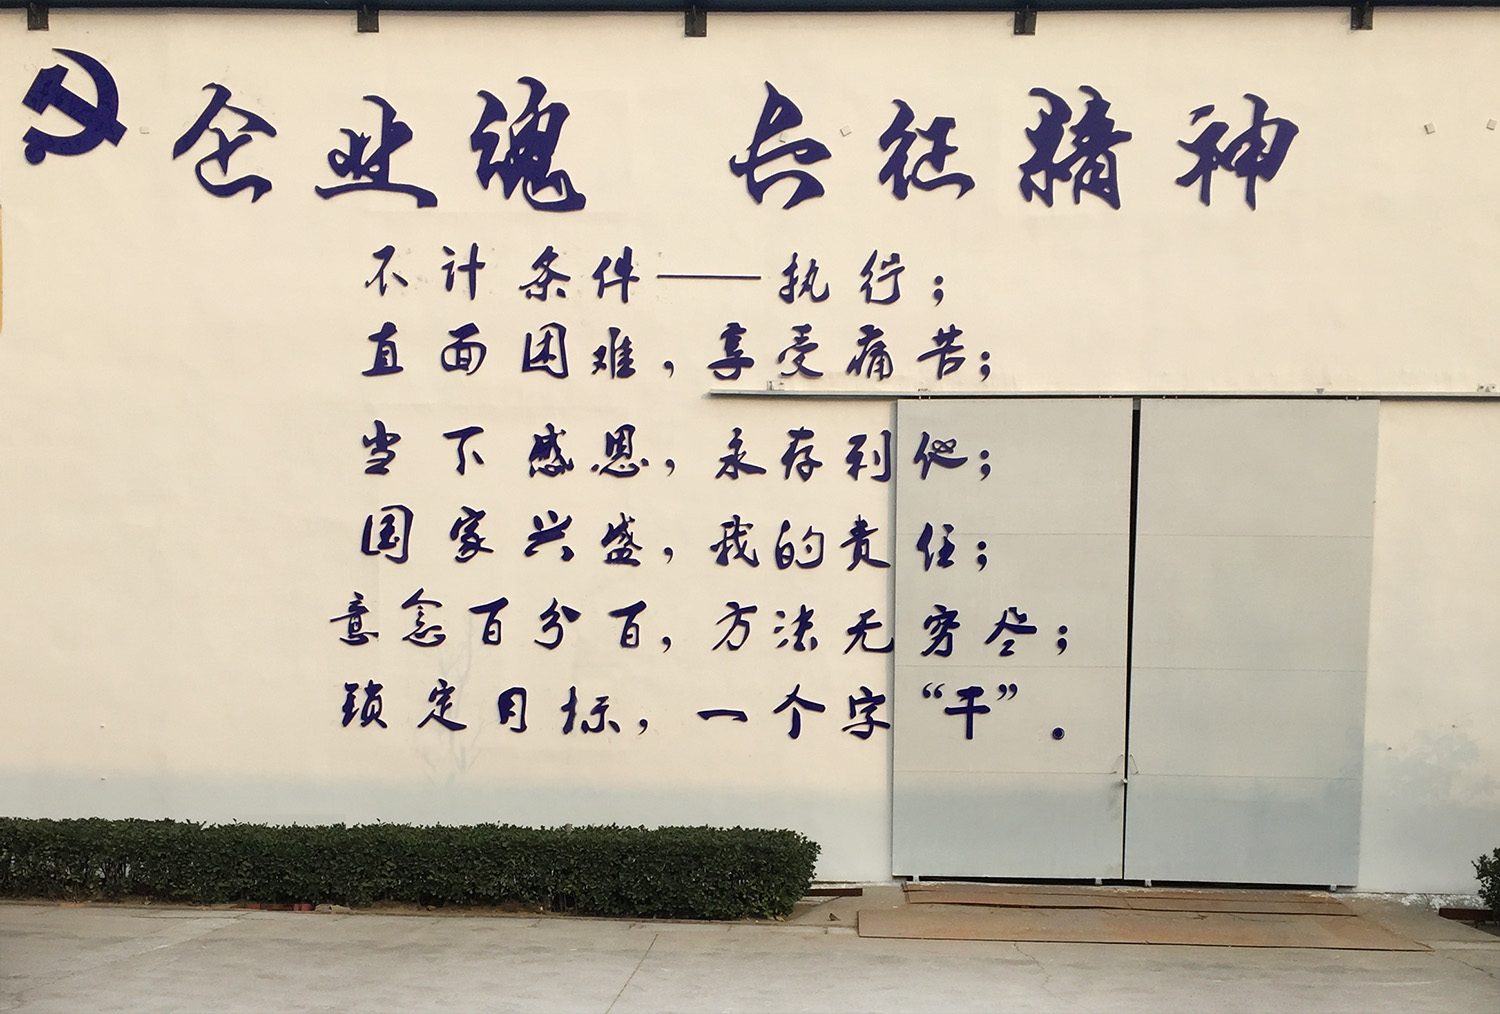 企业魂 长征精神
不计条件——执行；
直面困难，享受痛苦；
当下感恩，永存到他；
国家兴盛，我的责任；
意念百分百，方法无穷尽；
锁定目标，一个字“干”。